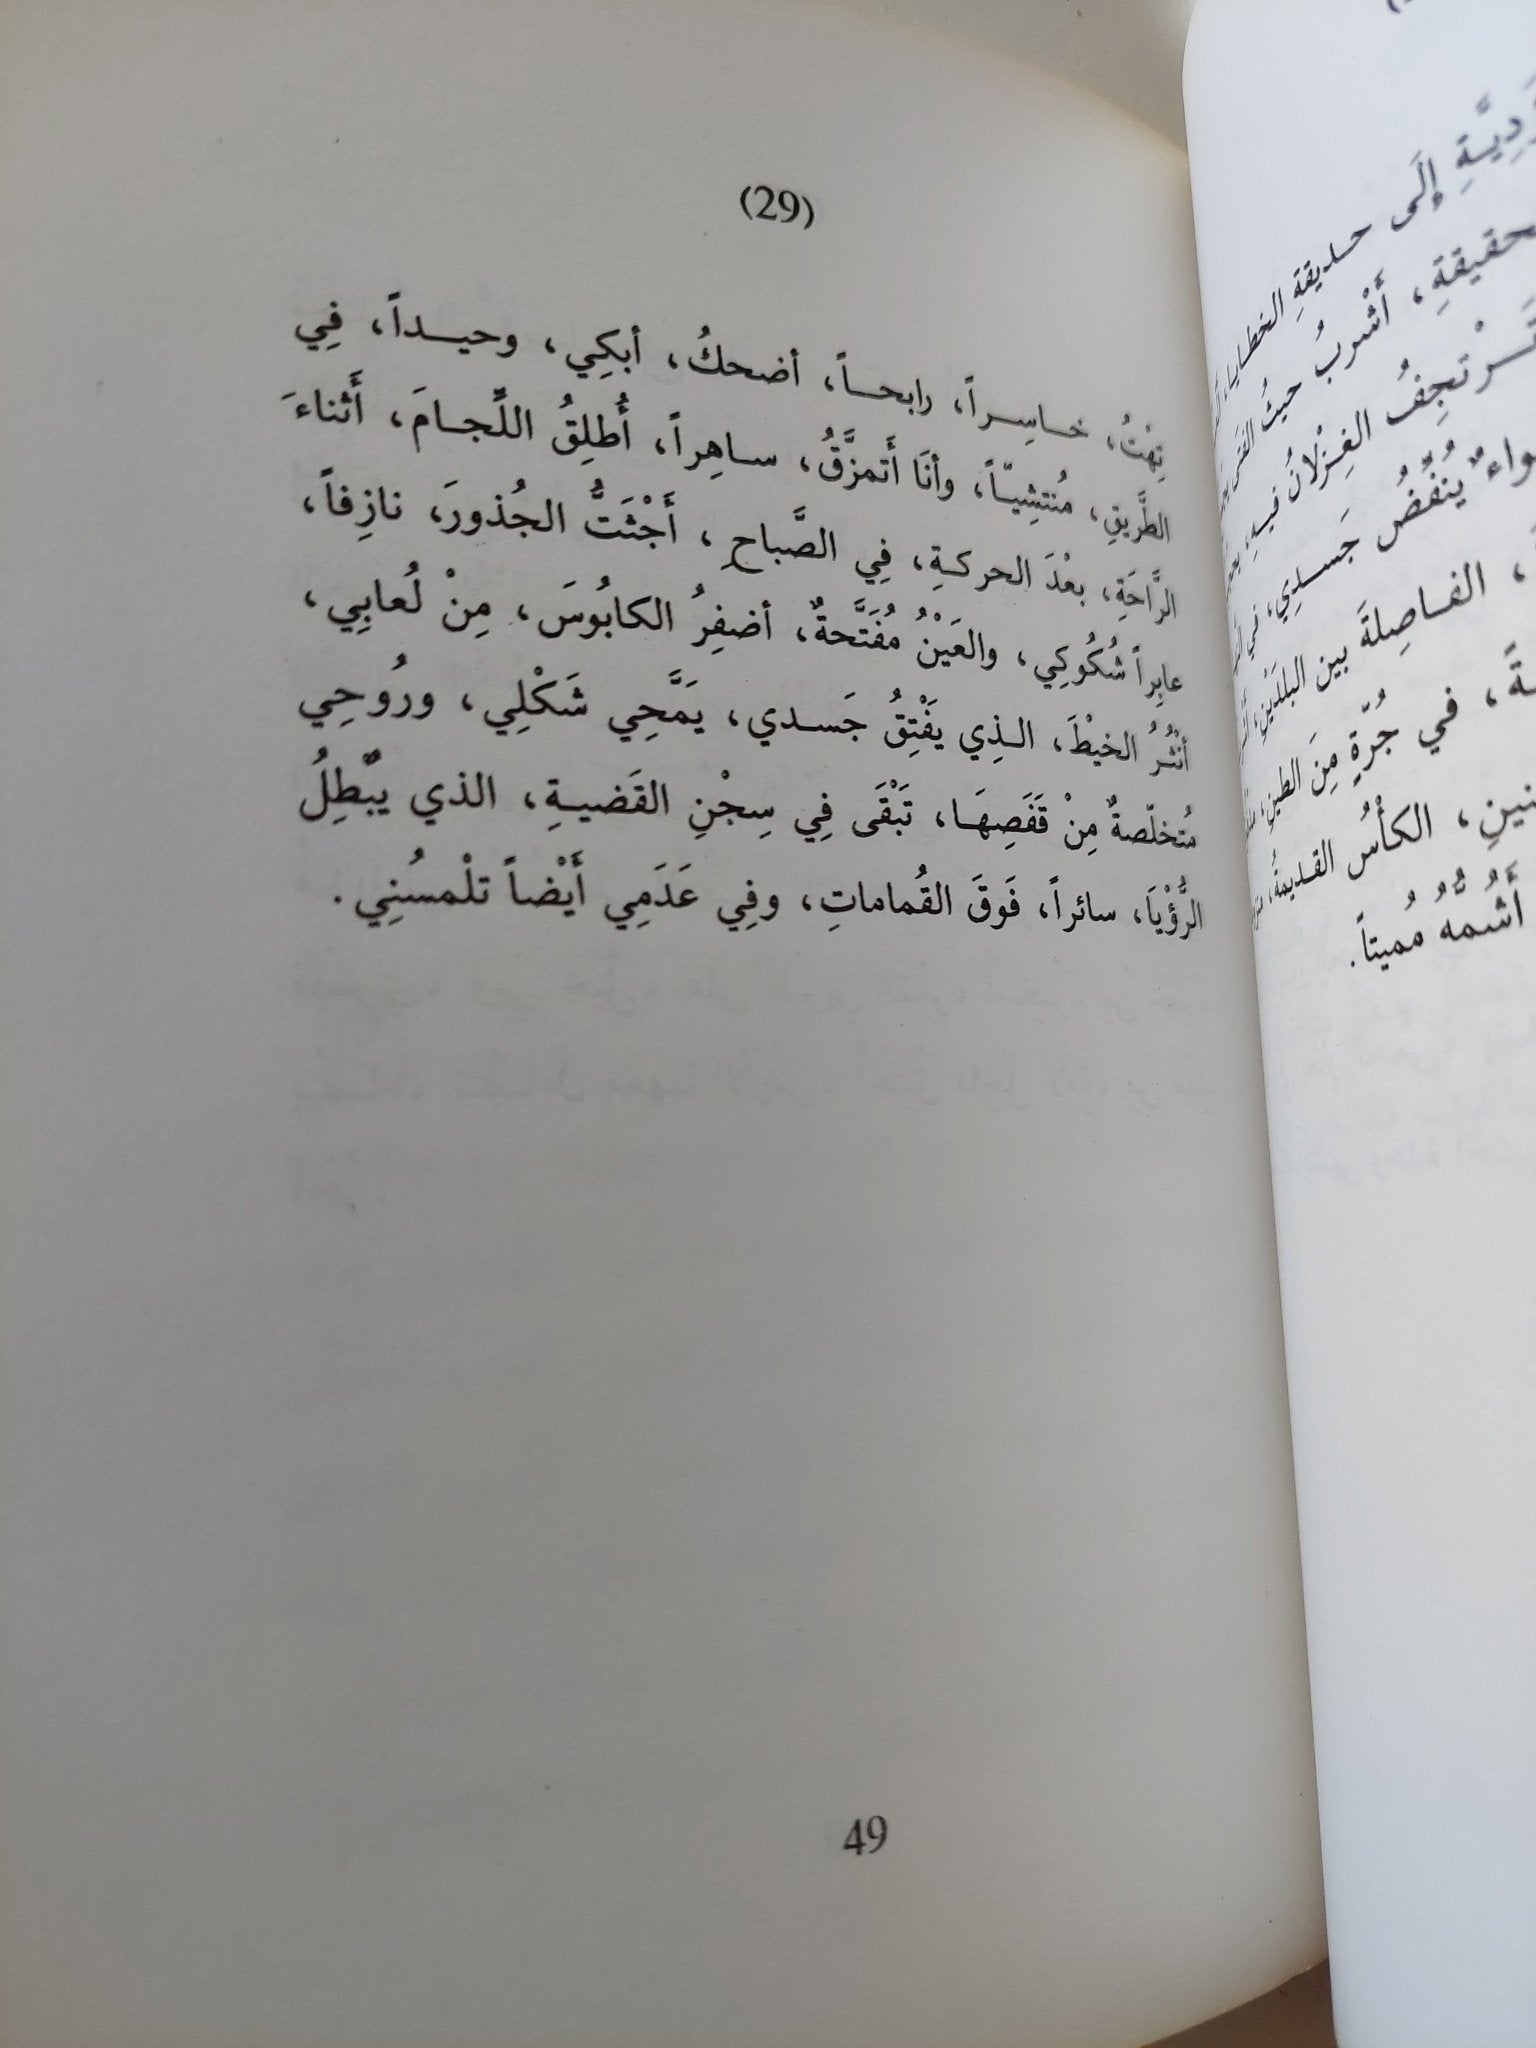 (29)
تِهْتُ، خاسِراً، رابحاً، أضحكُ، أبكِي، وحيداً، فِي
الطَّريقِ، مُنتشِيّاً، وأنَا أَتمزَّقُ، ساهِراً، أُطلِقُ اللِّجامَ، أَثناءَ
الرَّاحَةِ، بعْدَ الحركةِ، فِي الصَّباحِ، أَجْثَتُّ الجُذورَ، نازِفاً،
عابِراً شُكُوكِي، والعَيْنُ مُفَتَّحةٌ، أضفِرُ الكابُوسَ، مِنْ لُعابِي،
أنْثُرُ الخيْطَ، الذِي يَفْتِقُ جَسدي، يَمَّحِي شَكْلِي، ورُوحِي
مُتخلّصةٌ مِنْ قَفَصِهَا، تَبْقَى فِي سِجْنِ القَضيةِ، الذي يبْطِلُ
الرُّؤْيَا، سائراً، فَوقَ القُماماتِ، وفِي عَدَمِي أَيْضاً تلْمسُنِي.
49
إلَى حديقةِ الخطايا،
أَشْربُ حيثُ
تَرْتجِفُ الغِزْلانُ فيهِ،
يُنفِّضُ جَسدِي، في
، الفاصِلةَ بين البلدَيْنِ،
، في جُرّةٍ مِنَ الطينِ،
، الكأْسُ القديمةُ،
أَشُمُّهُ مُميتاً.